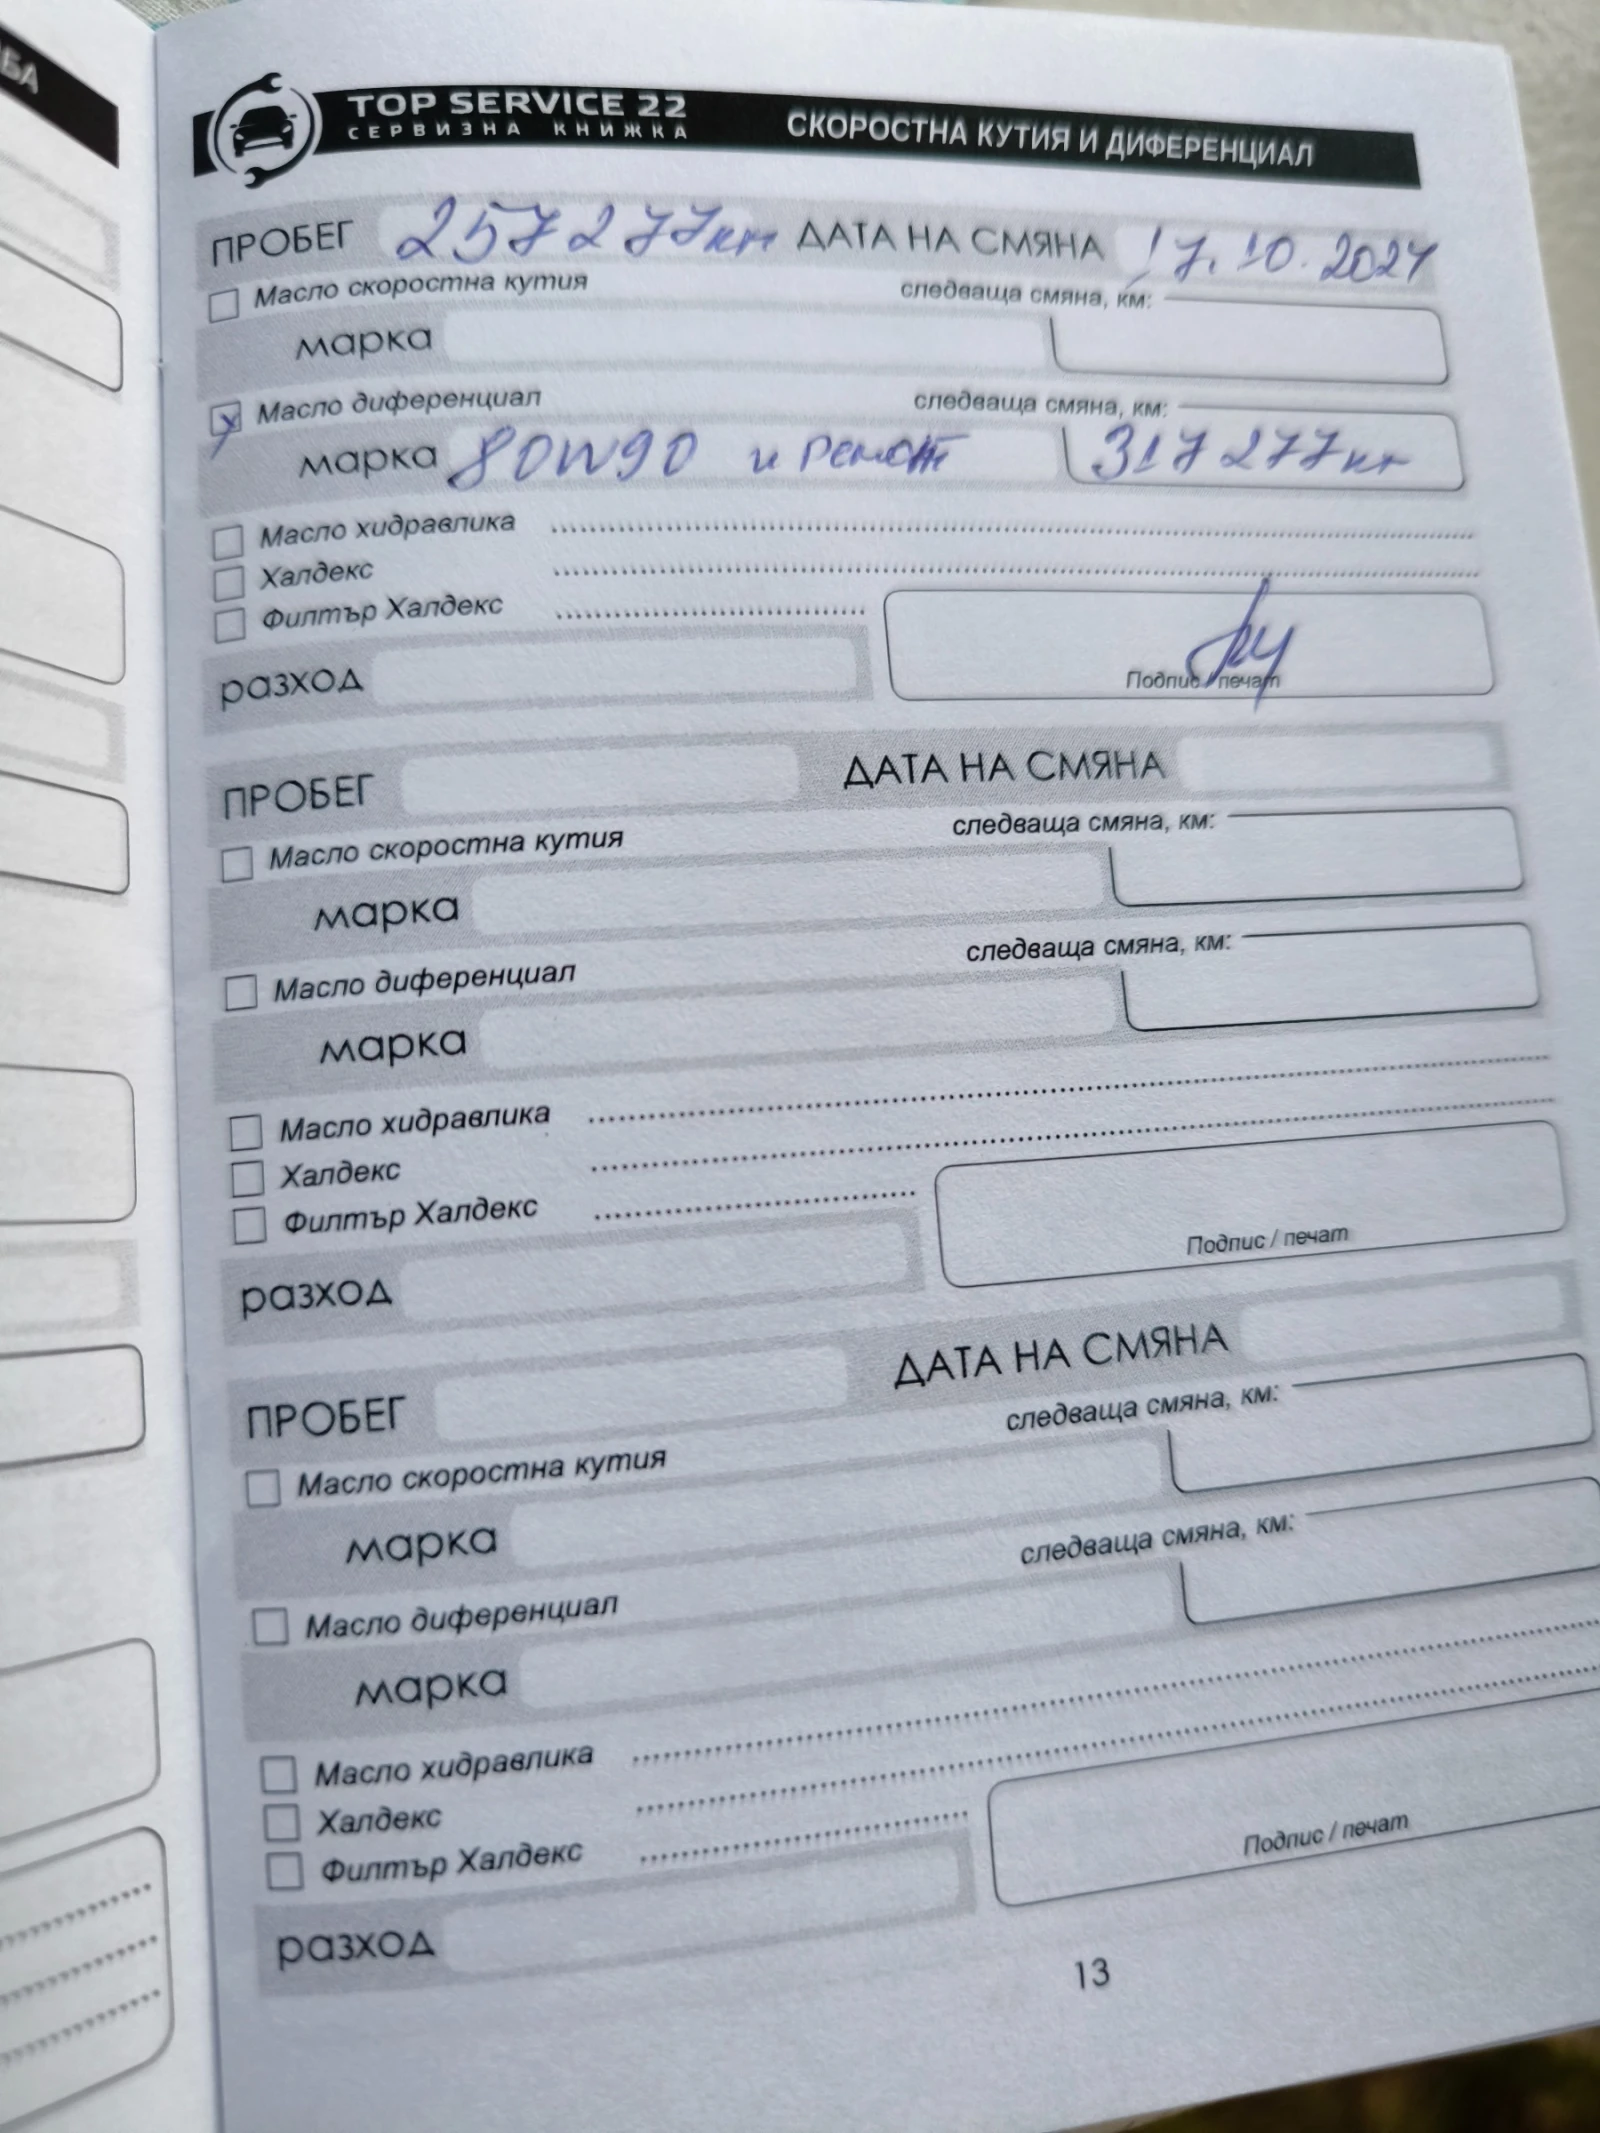 БА
TOP SERVICE 22
СЕРВИЗНА КНИЖКА
СКОРОСТНА КУТИЯ И ДИФЕРЕНЦИАЛ
ПРОБЕГ 257277км ДАТА НА СМЯНА 17.10.2024
Масло скоростна кутия следваща смяна, км:
марка
Масло диференциал следваща смяна, км:
марка 80W90 и ремонт 317277км
Масло хидравлика
Халдекс
Филтър Халдекс
разход
Подпис / печат
ПРОБЕГ ДАТА НА СМЯНА
Масло скоростна кутия следваща смяна, км:
марка
Масло диференциал следваща смяна, км:
марка
Масло хидравлика
Халдекс
Филтър Халдекс
разход
Подпис / печат
ПРОБЕГ ДАТА НА СМЯНА
Масло скоростна кутия следваща смяна, км:
марка
Масло диференциал следваща смяна, км:
марка
Масло хидравлика
Халдекс
Филтър Халдекс
разход
Подпис / печат
13